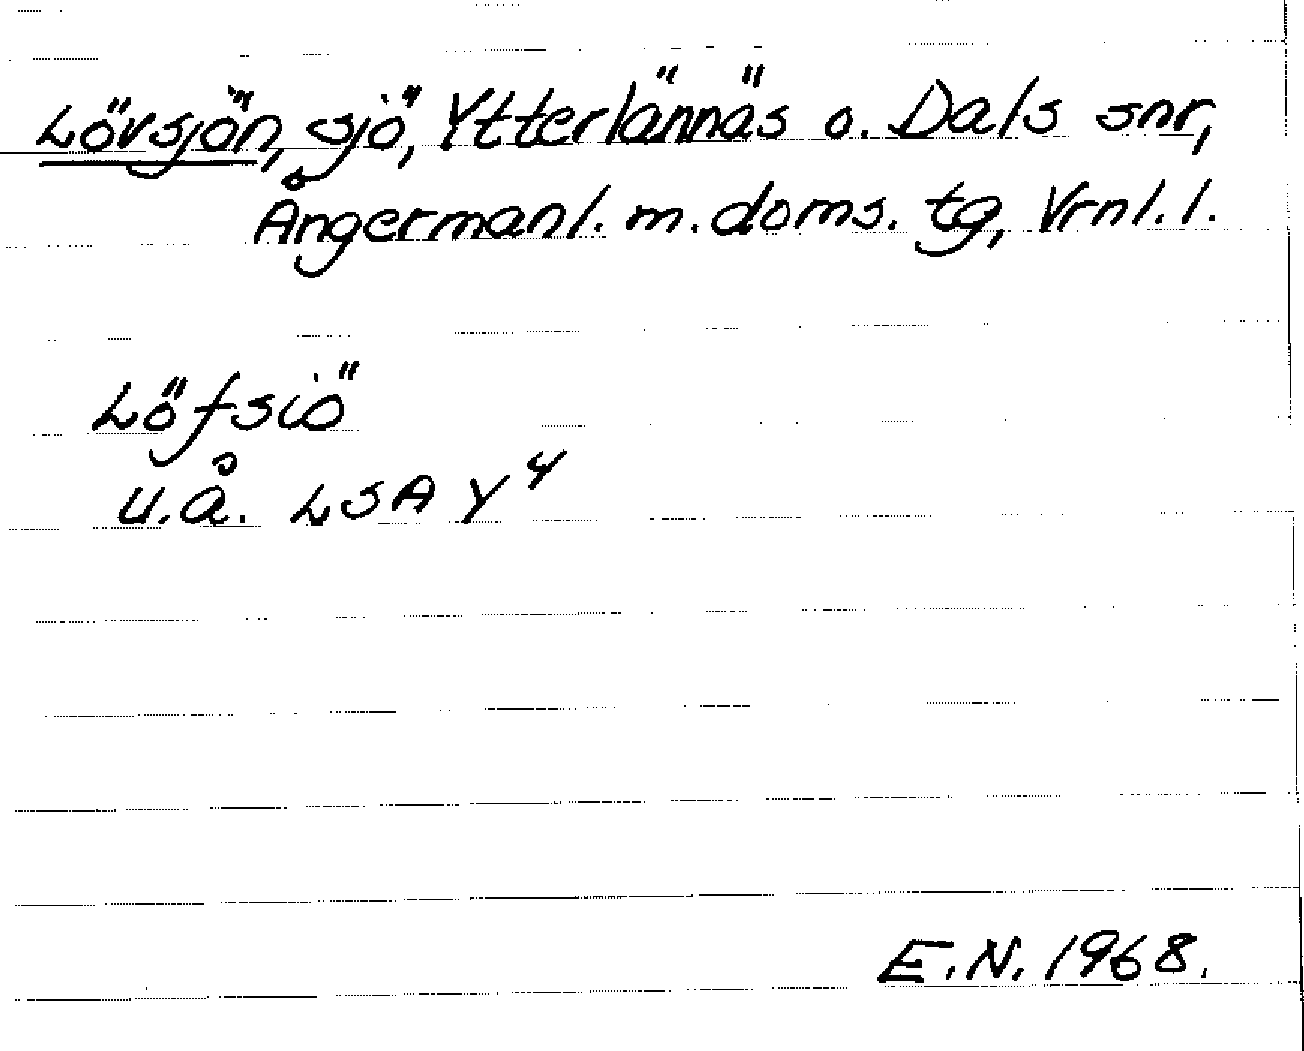 Lövsjön, sjö, Ytterlännäs o. Dals snr,
Ångermanl. m. doms. tg, Vrnl. l.
Löfsiö
u.å. LSA Y 4
E.N. 1968.